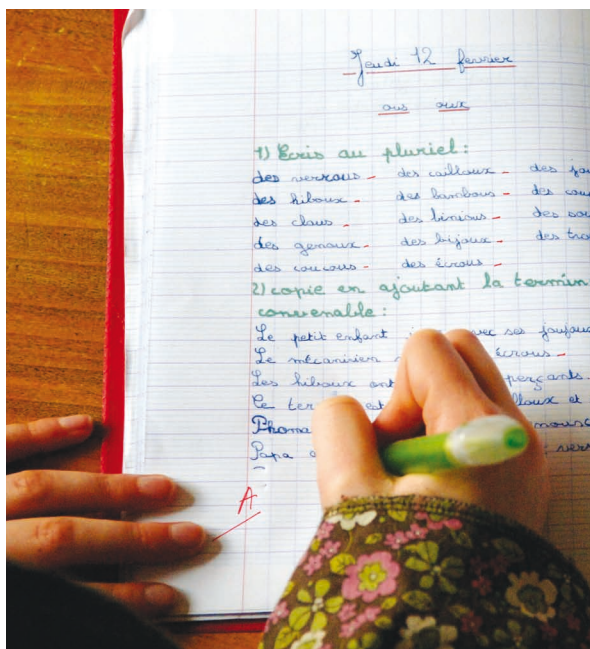 Jeudi 12 fevrier
ous oux
1) Ecris au pluriel :
des verrous - des cailloux - des jou
des hiboux - des bambous - des cou
des clous - des binious - des sou
des genoux - des bijoux - des tro
des coucous - des écrous -
2) copie en ajoutant la termin
convenable :
Le petit enfant avec ses joujoux
Le mécanicien écrous -
Les hiboux ont perçants
Ce ter est lloux et
Papa verr
A